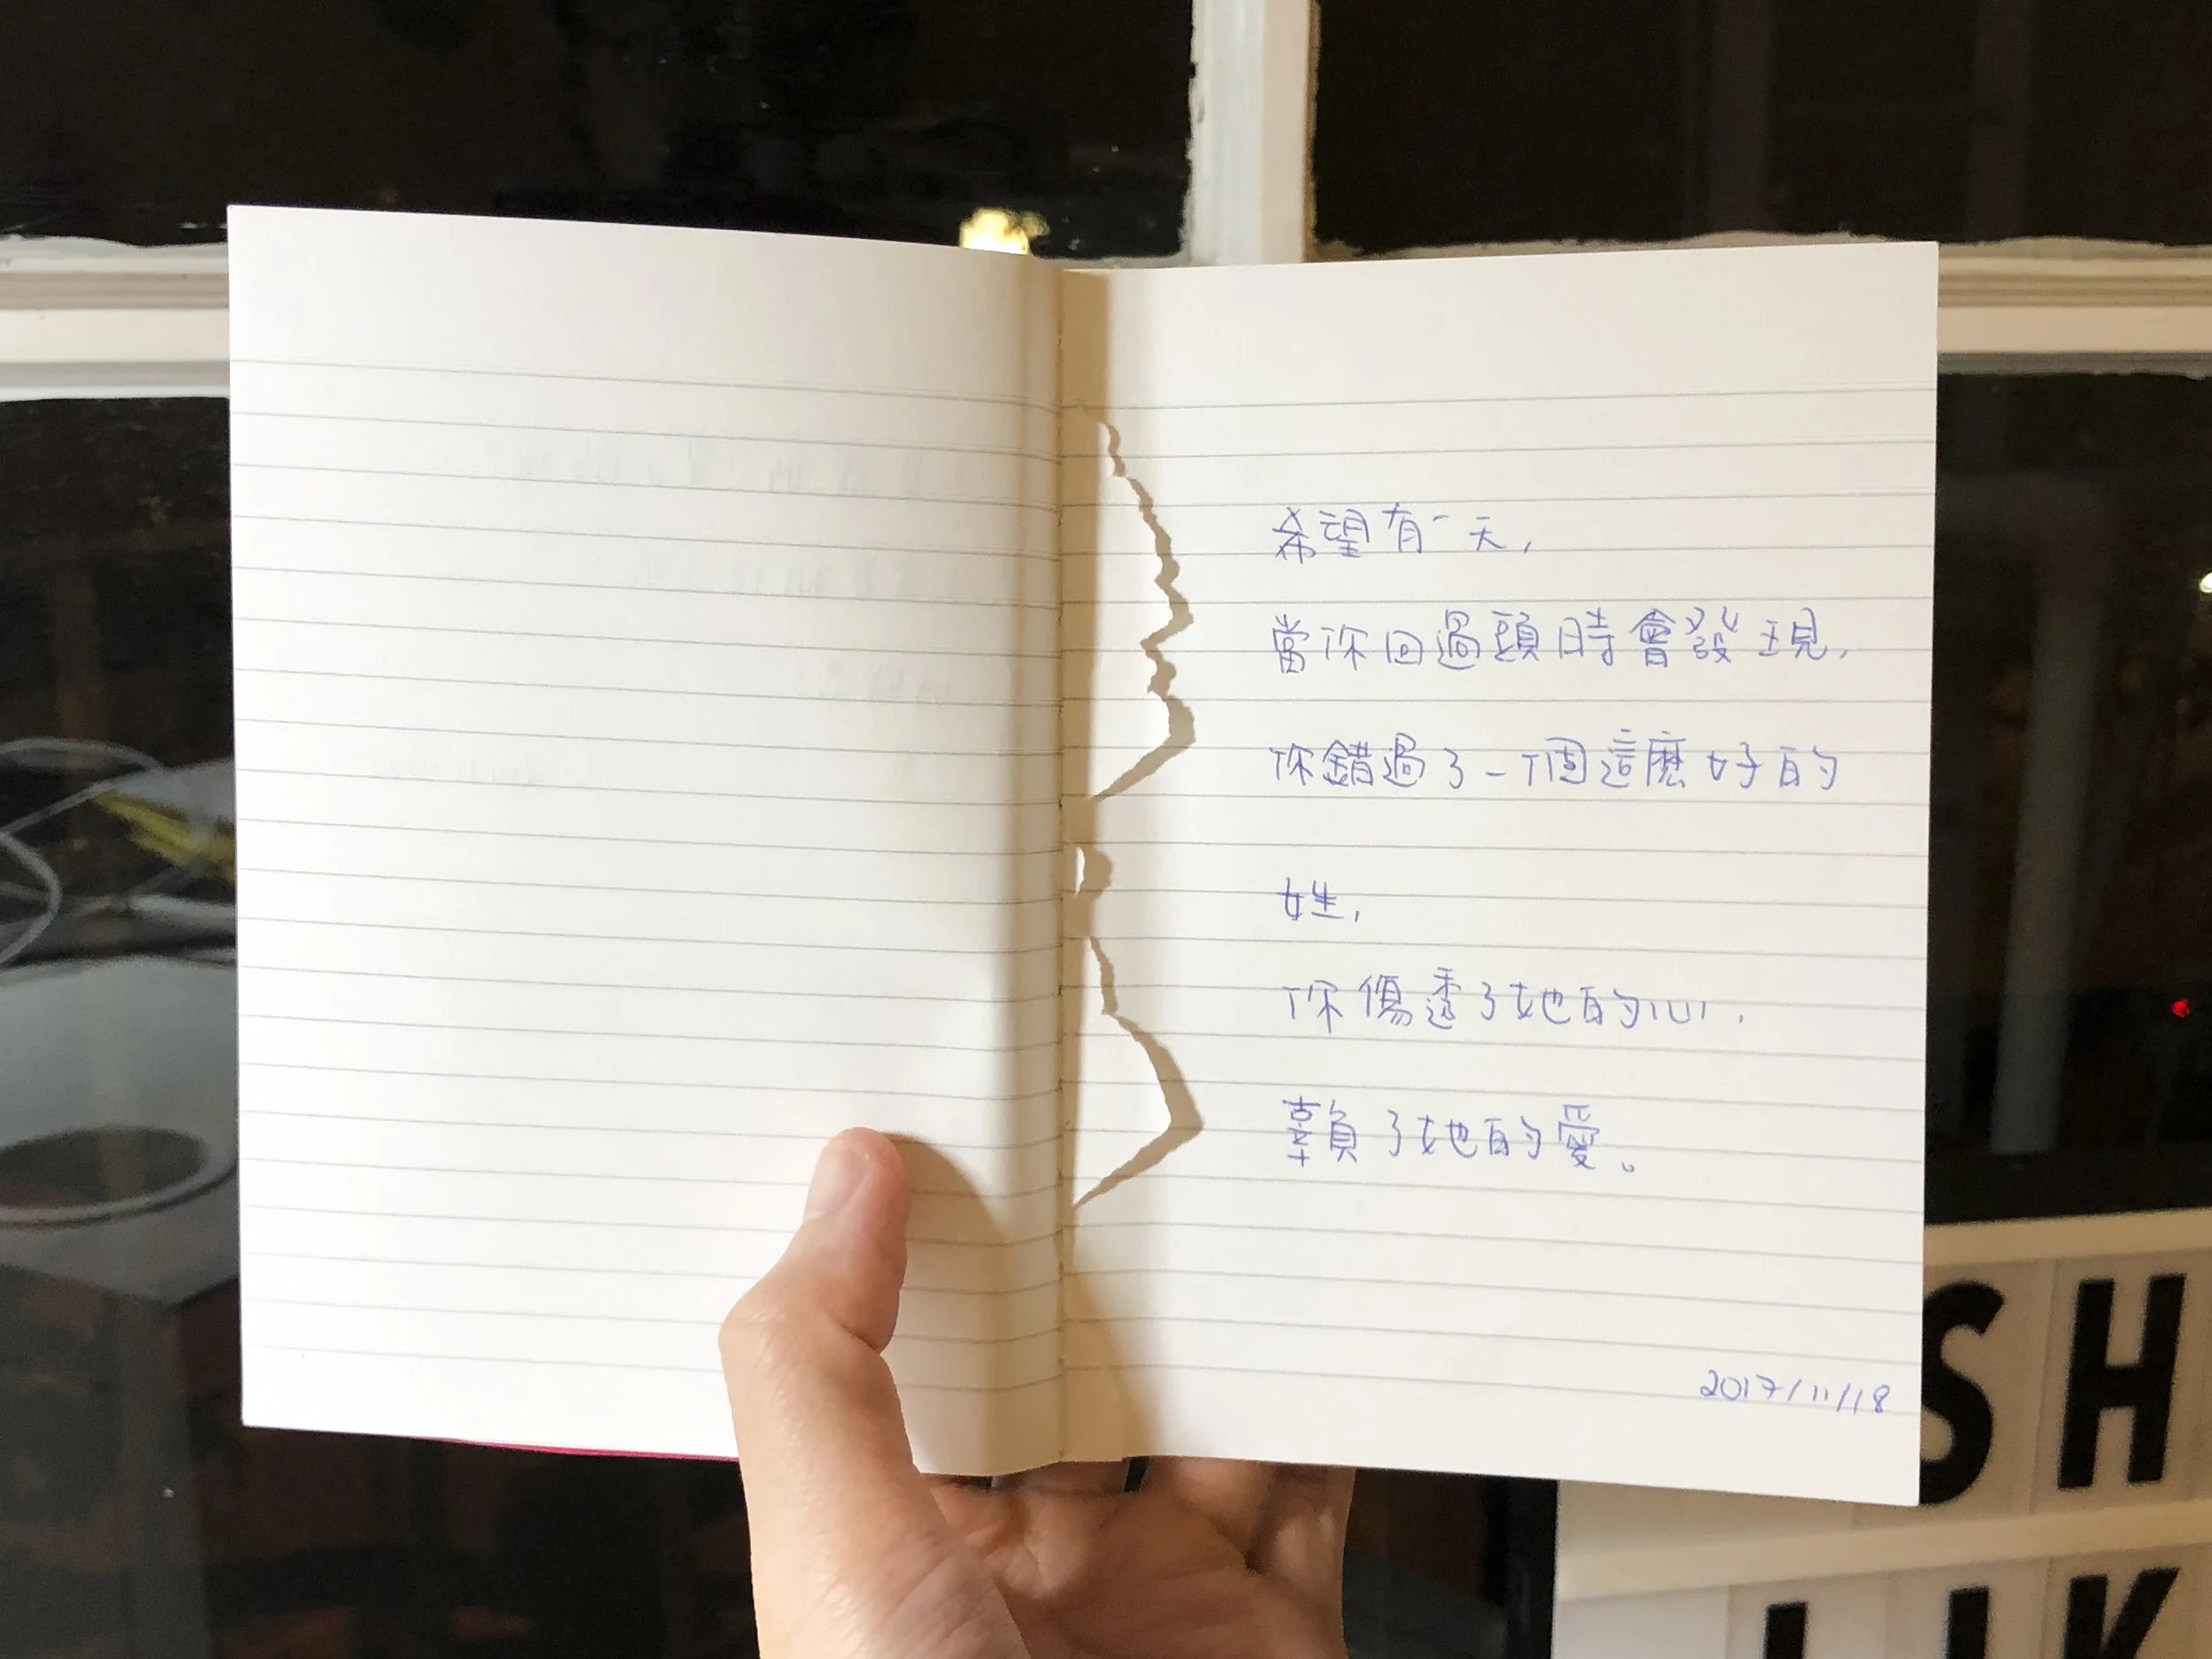 希望有一天,
當你回過頭時會發現,
你錯過了一個這麼好的
姓,
你傷透了她的心.
辜負了她的愛。
2017/11/18
SH